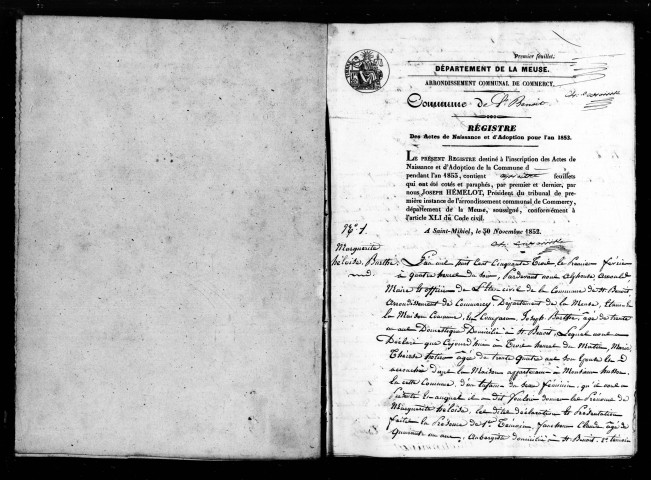 Premier feuillet.
DÉPARTEMENT DE LA MEUSE.
ARRONDISSEMENT COMMUNAL DE COMMERCY.
Commune de St Benoit
RÉGISTRE
Des Actes de Naissance et d'Adoption pour l'an 1853.
LE PRÉSENT REGISTRE destiné à l'inscription des Actes de
Naissance et d'Adoption de la Commune d
pendant l'an 1853, contient quatre feuillets
qui ont été cotés et paraphés, par premier et dernier, par
nous JOSEPH HÉMELOT, Président du tribunal de pre-
mière instance de l'arrondissement communal de Commercy,
département de la Meuse, soussigné, conformément à
l'article XLI du Code civil.
A Saint-Mihiel, le 30 Novembre 1852.
N° 1.
Marguerite
héloïse Barthe
L'an mil huit Cent Cinquante Trois le Premier février
à quatre heures du soir, Pardevant nous Alphonse
Maire et officier de L'état civil de la Commune de St Benoit
Arrondissement de Commercy, Département de la Meuse, Etant à
la Maison Commune, Est Comparu, Joseph Barthe, âgé de trente
un ans Domestique Domicilié à St Benoit, Lequel nous a
Déclaré que Cejourd'hui à Trois heures du Matin, Marie
Thérèse âgée de trente quatre ans son Epouse Est
accouchée dans la Maison appartenant à Monsieur
en cette Commune, d'un Enfant du sexe féminin, qu'il nous a
Présenté Et auquel il a dit Vouloir donner les Prénoms de
Marguerite héloïse, les dites déclaration Et Présentation
faites En Présence de 1er Témoin, Claude âgé de
Quarante un ans, Aubergiste domicilié à St Benoit. 2e témoin